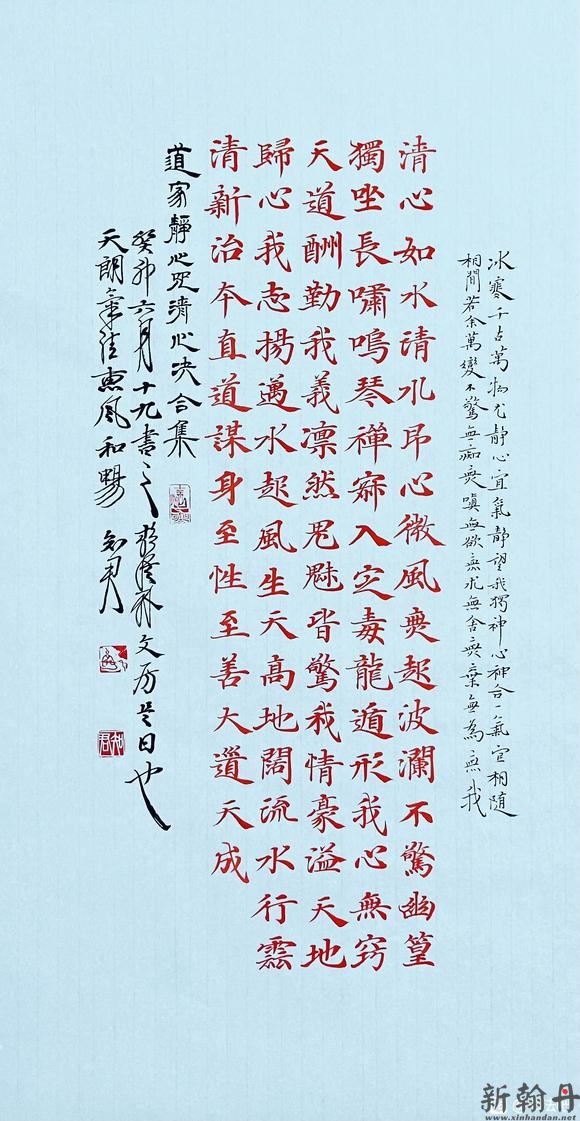 冰寒千古萬物尤靜心宜氣靜望我獨神心神合一氣宜相隨
相間若余萬變不驚無痴無嗔無欲無求無舍無棄無為無我
清心如水清水即心微風無起波瀾不驚幽篁
獨坐長嘯鳴琴禪寂入定毒龍遁形我心無窍
天道酬勤我義凛然鬼魅皆驚我情豪溢天地
歸心我志揚邁水起風生天高地闊流水行雲
清新治本直道謀身至性至善大道天成
道家靜心咒清心决合集
癸卯六月十九書之於文房是日也
天朗氣清惠風和暢知君
知君
新翰丹
www.xinhandan.net